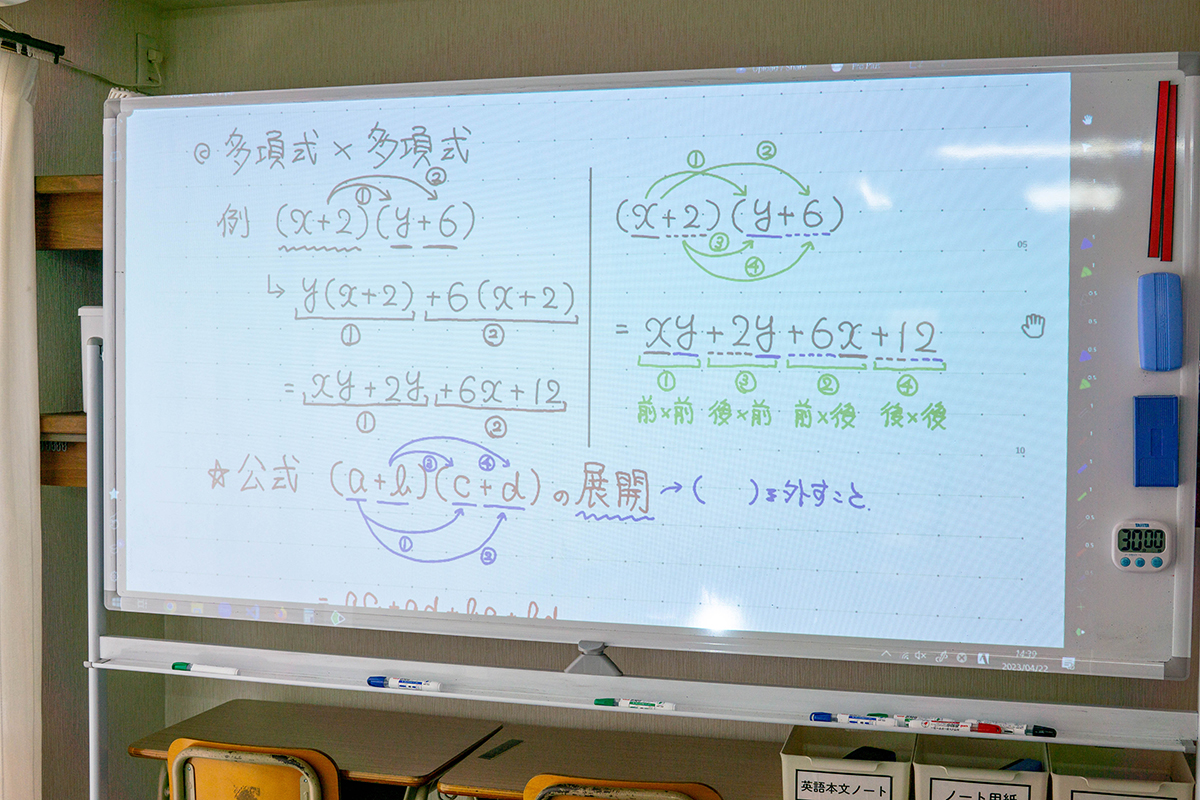 ◎ 多項式 × 多項式
① ②
例 (x+2)(y+6)
↳ y(x+2) +6(x+2)
① ②
= xy+2y +6x+12
① ②
① ②
(x+2)(y+6)
③ ④
= xy+2y+6x+12
① ③ ② ④
前×前 後×前 前×後 後×後
③ ④
☆ 公式 (a+b)(c+d)の展開 →( )を外すこと.
① ②
= ac+ad+bc+bd
05
10
30 00
14:19
2023/04/22
英語本文ノート
ノート用紙